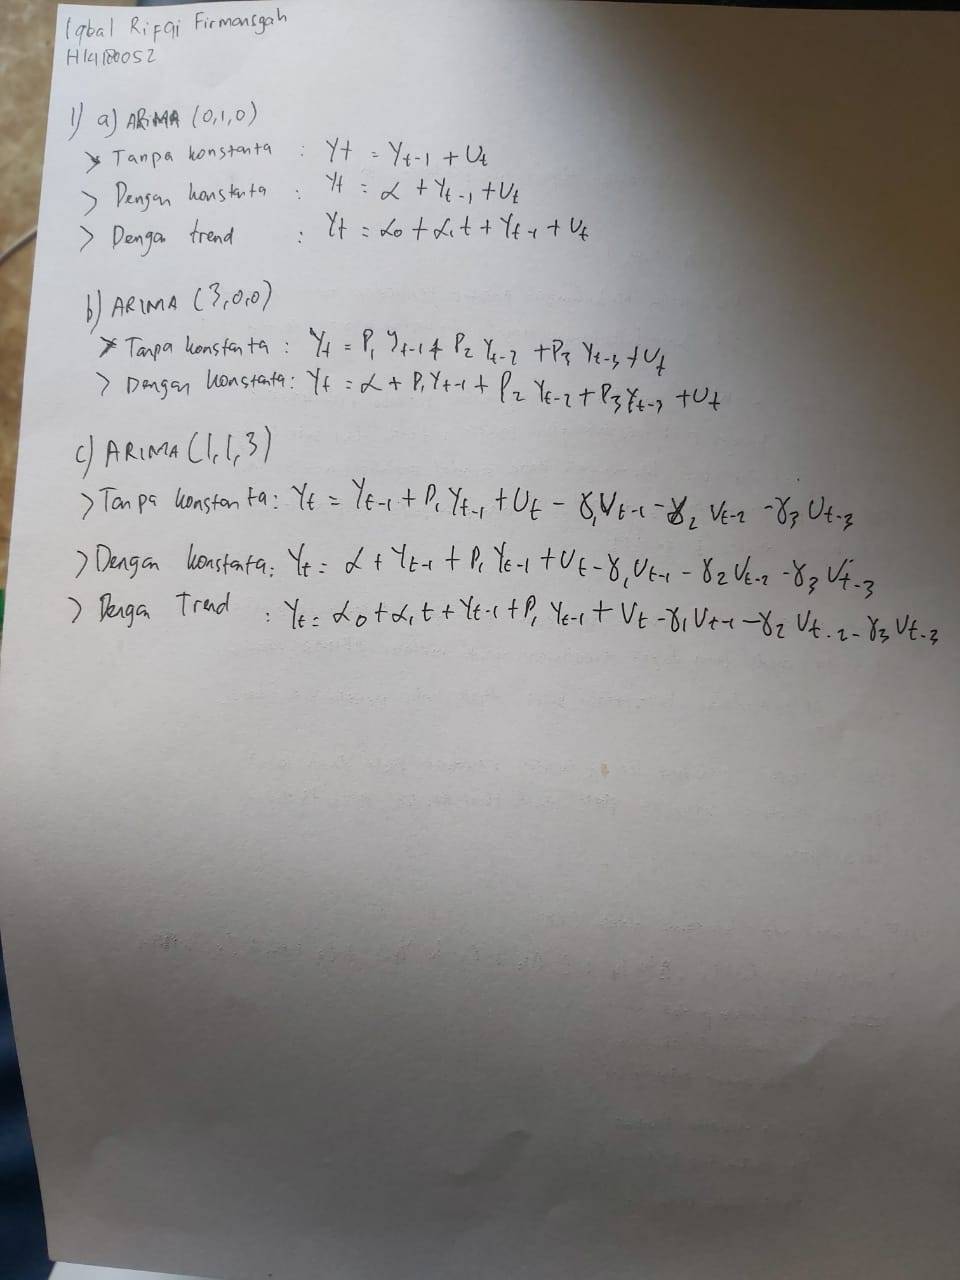 Iqbal Rifqi Firmansyah
H14180052
1) a) ARIMA (0,1,0)
> Tanpa konstanta : Yt = Yt-1 + Ut
> Dengan konstanta : Yt = α + Yt-1 + Ut
> Dengan trend : Yt = α0 + α1t + Yt-1 + Ut
b) ARIMA (3,0,0)
> Tanpa konstanta : Yt = P1 Yt-1 + P2 Yt-2 + P3 Yt-3 + Ut
> Dengan konstanta: Yt = α + P1 Yt-1 + P2 Yt-2 + P3 Yt-3 + Ut
c) ARIMA (1,1,3)
> Tanpa konstanta: Yt = Yt-1 + P1 Yt-1 + Ut - γ1 Ut-1 - γ2 Ut-2 - γ3 Ut-3
> Dengan konstanta: Yt = α + Yt-1 + P1 Yt-1 + Ut - γ1 Ut-1 - γ2 Ut-2 - γ3 Ut-3
> Dengan Trend : Yt = α0 + α1t + Yt-1 + P1 Yt-1 + Ut - γ1 Ut-1 - γ2 Ut-2 - γ3 Ut-3